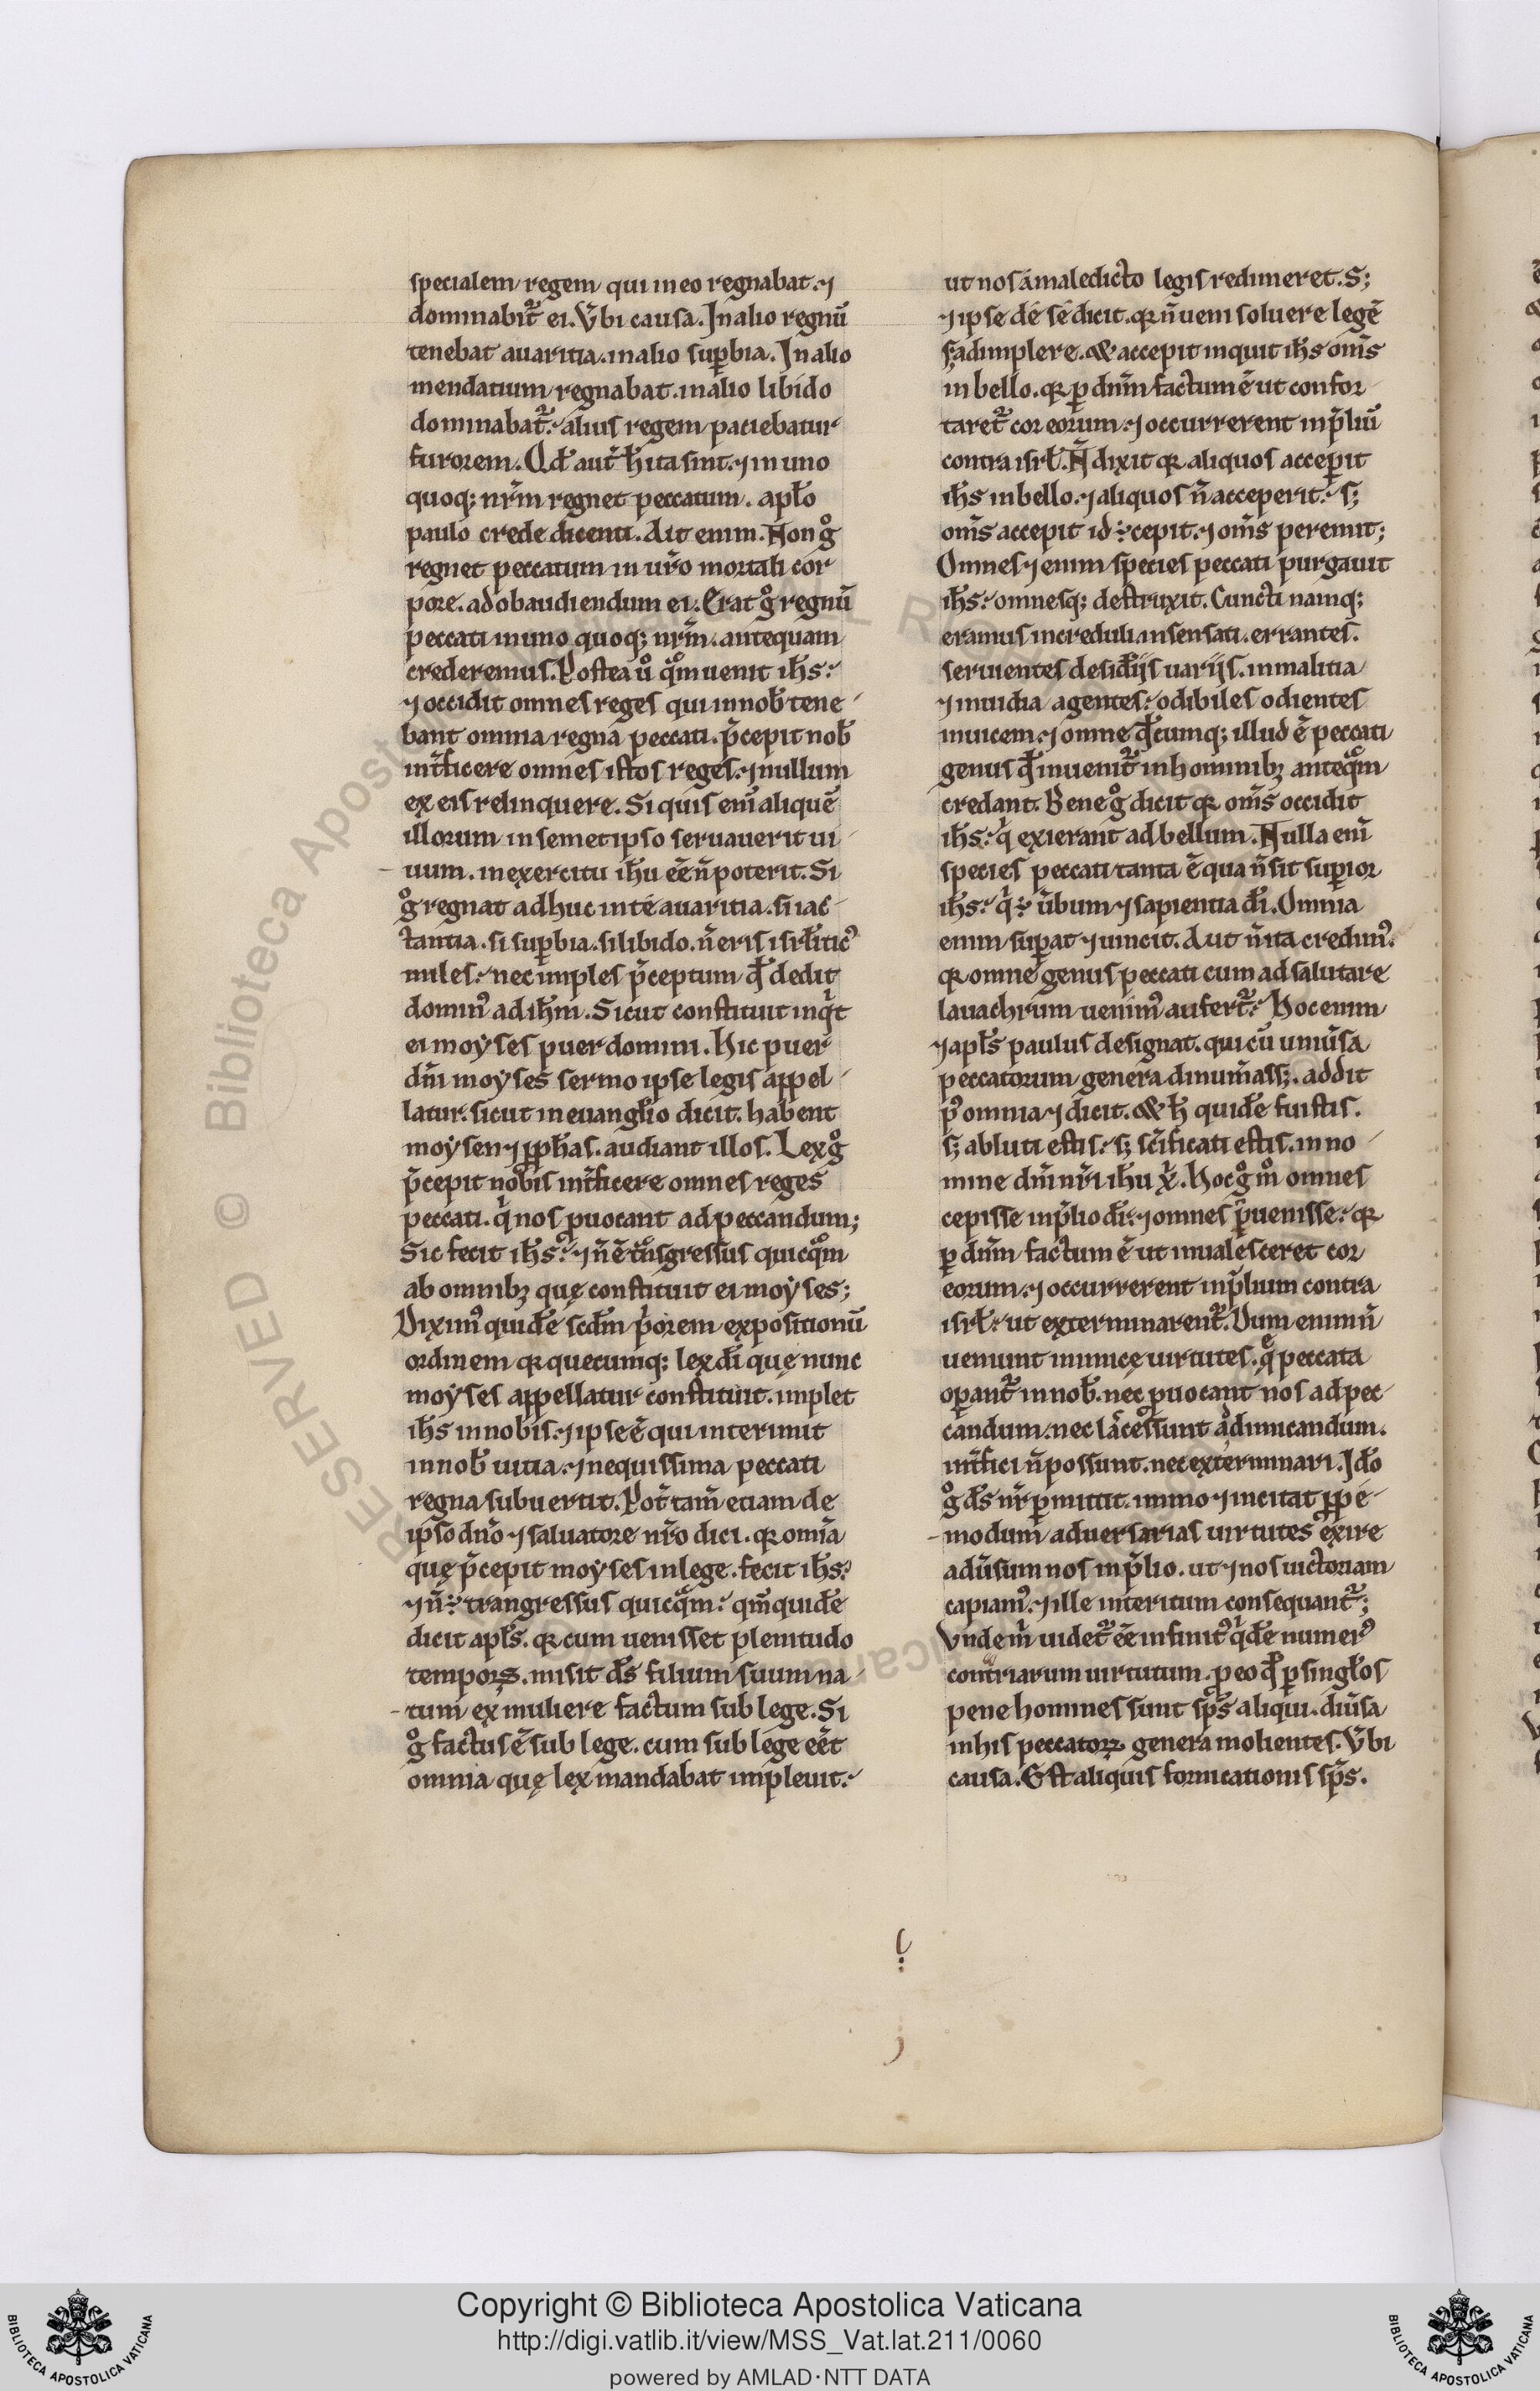 specialem regem qui in eo regnabat. ⁊
dominabit᷑ ei. V̄bi causa. In alio regnū
tenebat auaritia. in alio sup̱bia. In alio
mendatium regnabat. in alio libido
dominabat᷑. alius regem paciebatur
furorem. Qđ aut̄ h̄ ita sint. ⁊ in uno
quoq; nr̄m regnet peccatum. apło
paulo crede dicenti. Ait enim. Non gͦ
regnet peccatum in ur̄o mortali cor
pore. ad obaudiendum ei. Erat gͦ regnū
peccati in uno quoq; nr̄m. antequam
crederemus. Postea uͦ qͦm uenit ih̄s.
⁊ occidit omnes reges qui in nob̄ tene
bant omnia regna peccati. p̄cepit nob̄
int̄ficere omnes istos reges. ⁊ nullum
ex eis relinquere. Si quis enī aliquē
illorum in semetipso seruauerit ui
uum. in exercitu ih̄u ēē n̄ poterit. Si
gͦ regnat adhuc in te auaritia. si iac
tantia. si sup̱bia. si libido. n̄ eris isrł̄itic᷒
miles. nec imples p̄ceptum qđ dedit
domin᷒ ad ih̄m. Sicut constituit inqͥt
ei moẏses puer domini. Hic puer
dn̄i moẏses sermo ipse legis appel
latur. sicut in euangłio dicit. habent
moẏsen ⁊ ꝓph̄as. audiant illos. Lex gͦ
p̄cepit nobis int̄ficere omnes reges
peccati. qͥ nos ꝓuocant ad peccandum;
Sic fecit ih̄s. ⁊ n̄ ē tͣnsgressus quicqͣm
ab omnibꝫ quę constituit ei moẏses;
Dixim᷒ quidē scd̄m pͥorem expositionū
ordinem qꝛ quecumq; lex dī quę nunc
moẏses appellatur constituit. implet
ih̄s in nobis. ⁊ ipse ē qui interimit
in nob̄ uitia. ⁊ nequissima peccati
regna subuertit. Pot̄ tam̄ etiam de
ipso dn̄o ⁊ saluatore nr̄o dici. qꝛ omīa
quę p̄cepit moẏses in lege. fecit ih̄s.
⁊ n̄ ÷ trangressus quicqͣm. qm̄ quidē
dicit apłs. qꝛ cum uenisset plenitudo
temporꝝ. misit d̄s filium suum na
tum ex muliere factum sub lege. Si
gͦ factus ē sub lege. cum sub lege eēt
omnia quę lex mandabat impleuit.
ut nos a maledicto legis redimeret. S;
⁊ ipse de se dicit. qꝛ n̄ ueni soluere legē
s; adimplere. & accepit inquit ih̄s om̄s
in bello. qꝛ p̱ dn̄m factum ē ut confor
taret᷑ cor eorum. ⁊ occurrerent in p̄liū
contra isrł. N̄ dixit qꝛ aliquos accepit
ih̄s in bello. ⁊ aliquos n̄ acceperit. s;
om̄s accepit id ÷ cepit. ⁊ om̄s peremit;
Omnes ⁊enim species peccati purgauit
ih̄s. omnesq; destruxit. Cuncti namq;
eramus increduli insensati. errantes.
seruientes desiđijs uarijs. in malitia
⁊ inuidia agentes. odibiles odientes
inuicem. ⁊ omne qđcumq; illud ē peccati
genus qđ inuenit᷑ in hominibꝫ anteqͣm
credant. Bene gͦ dicit qꝛ om̄s occidit
ih̄s. qͥ exierant ad bellum. Nulla enī
species peccati tanta ē qua n̄ sit sup̱ior
ih̄s. qͥ ÷ ūbum ⁊ sapientia dī. Omnia
enim sup̱at ⁊ uincit. Aut n̄ ita credim᷒.
qꝛ omne genus peccati cum ad salutare
lauachrum uenim᷒ aufert᷑. Hoc enim
⁊ apłs paulus designat. qui cū uniūsa
peccatorum genera dinum̄ass;. addit
p᷒ omnia ⁊ dicit. & h̄ quidē fuistis.
s; abluti estis. s; sc̄ificati estis. in no
mine dn̄i nr̄i ih̄u xͥ. Hoc gͦ mͦ omnes
cepisse in p̄lio dī. ⁊ omnes p̄uenisse. qꝛ
p̱ dn̄m factum ē ut inualesceret cor
eorum. ⁊ occurrerent in p̄lium contra
isrł. ut exterminarent᷑. Dum enim n̄
ueniunt inimicę uirtutes. qͤ peccata
op̱ant᷑ in nob̄. nec ꝓuocant nos ad pec
candum. nec lacessunt ad dimicandum.
int̄fici n̄ possunt. nec exterminari. Iđo
gͦ d̄s nr̄ p̱mittit. immo ⁊ incitat ꝓpe
modum aduersarias uirtutes exire
adūsum nos in p̄lio. ut ⁊ nos uictoriam
capiam᷒. ⁊ ille interitum consequant᷑;
Vnde m̄ uidet᷑ ēē infinit᷒ qͥdē numer᷒
contͣriarum uirtutum. ꝓ eo qđ p̱ singłos
pene homines sunt sp̄s aliqui. diūsa
in his peccatorꝝ genera molientes. V̄bi
causa. Est aliquis fornicationis sp̄s.
Copyright © Biblioteca Apostolica Vaticana
http://digi.vatlib.it/view/MSS_Vat.lat.211/0060
powered by AMLAD·NTT DATA
BIBLIOTECA APOSTOLICA VATICANA
BIBLIOTECA APOSTOLICA VATICANA